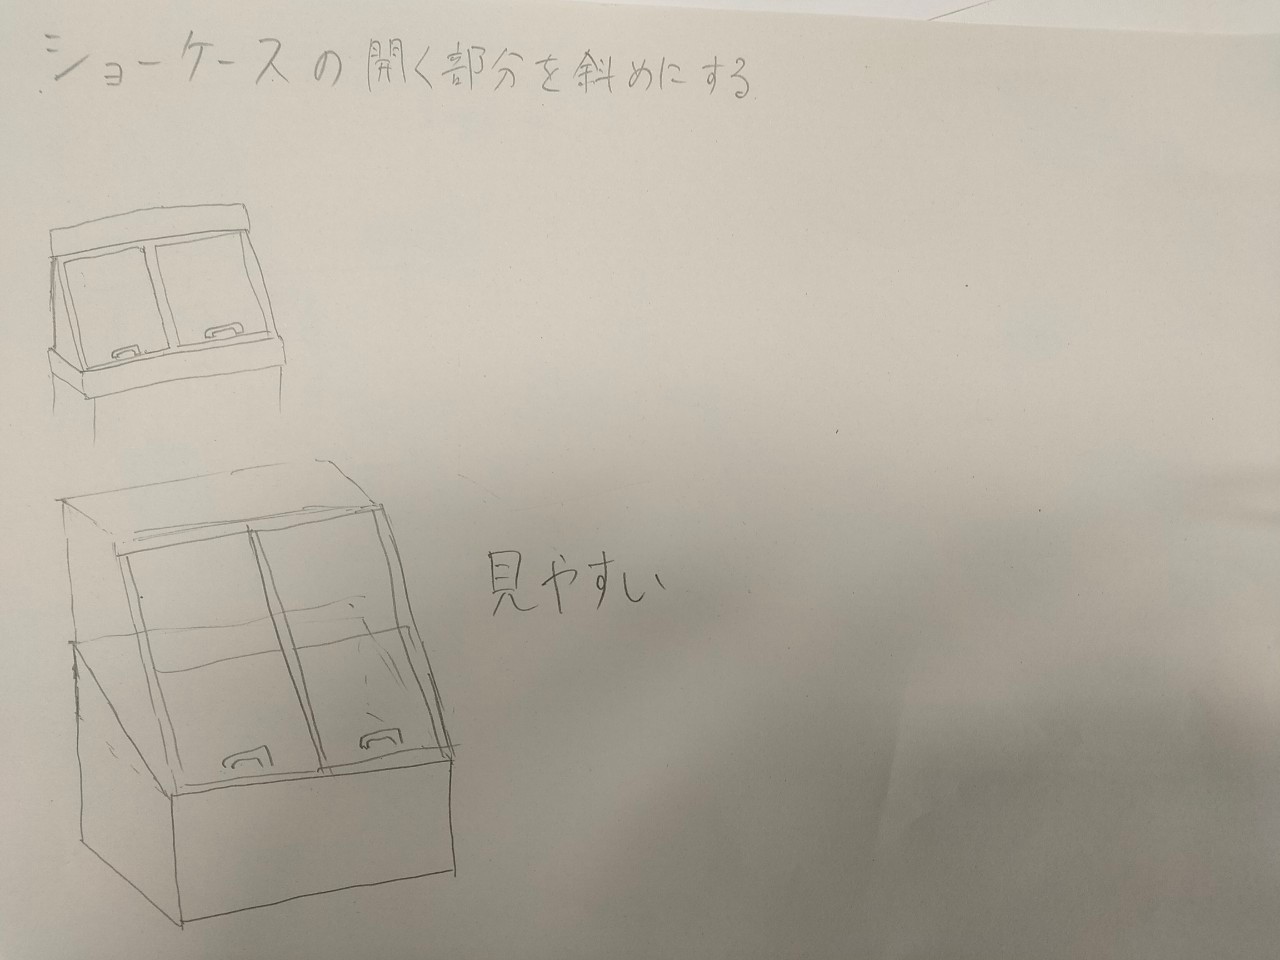 ショーケースの開く部分を斜めにする
見やすい